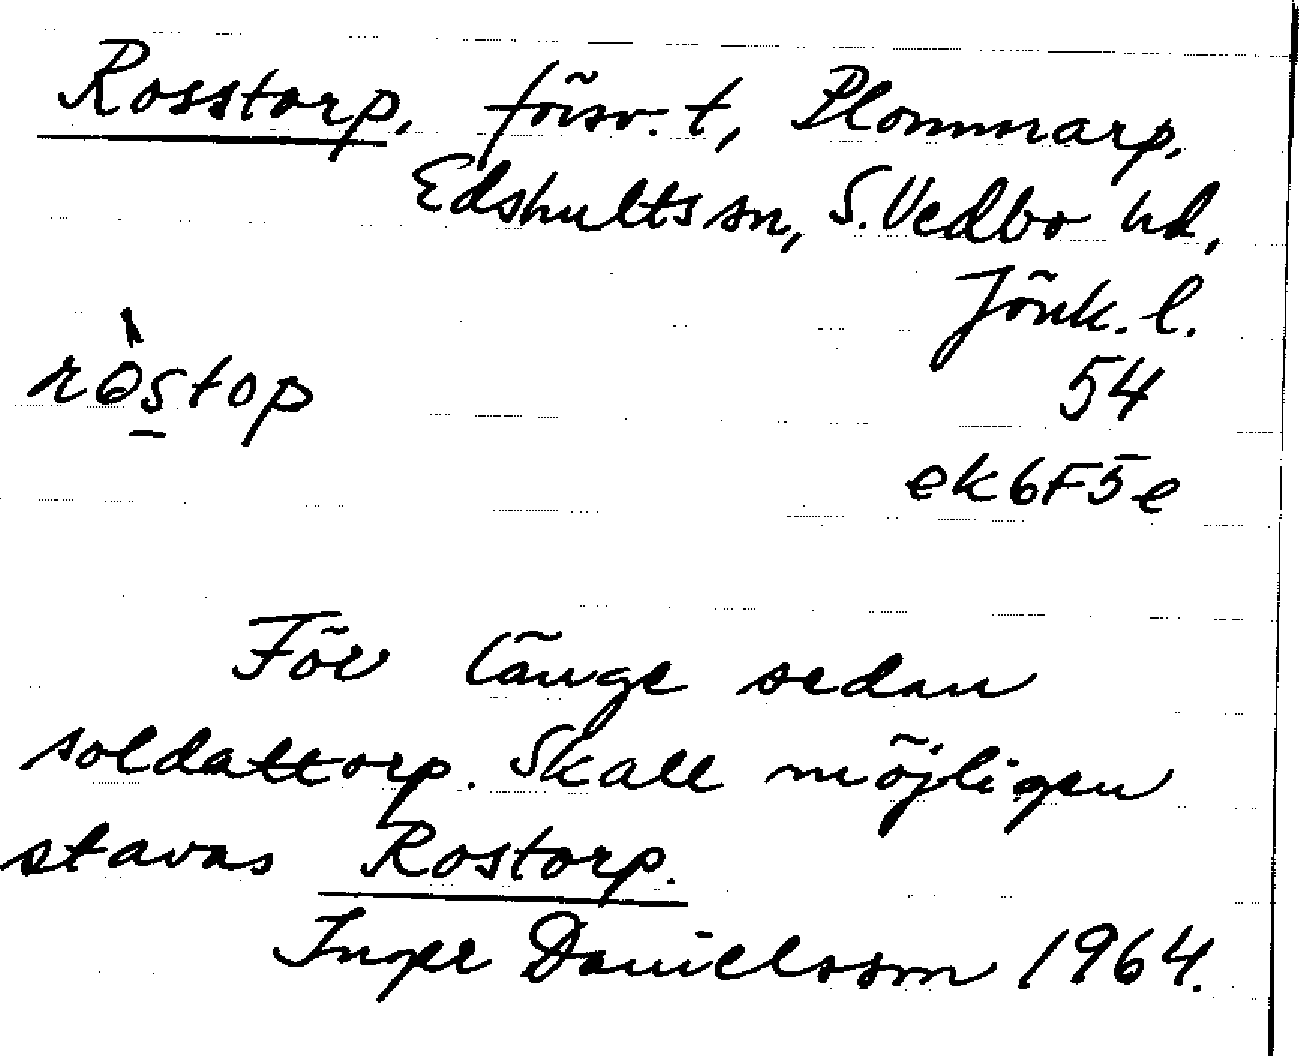 Rosstorp, försv. t, Plommarp,
Edshults sn, S. Vedbo hd,
Jönk. l.
ròstop
54
ek6F5e
För länge sedan
soldattorp. Skall möjligen
stavas Rostorp.
Inger Danielsson 1964.